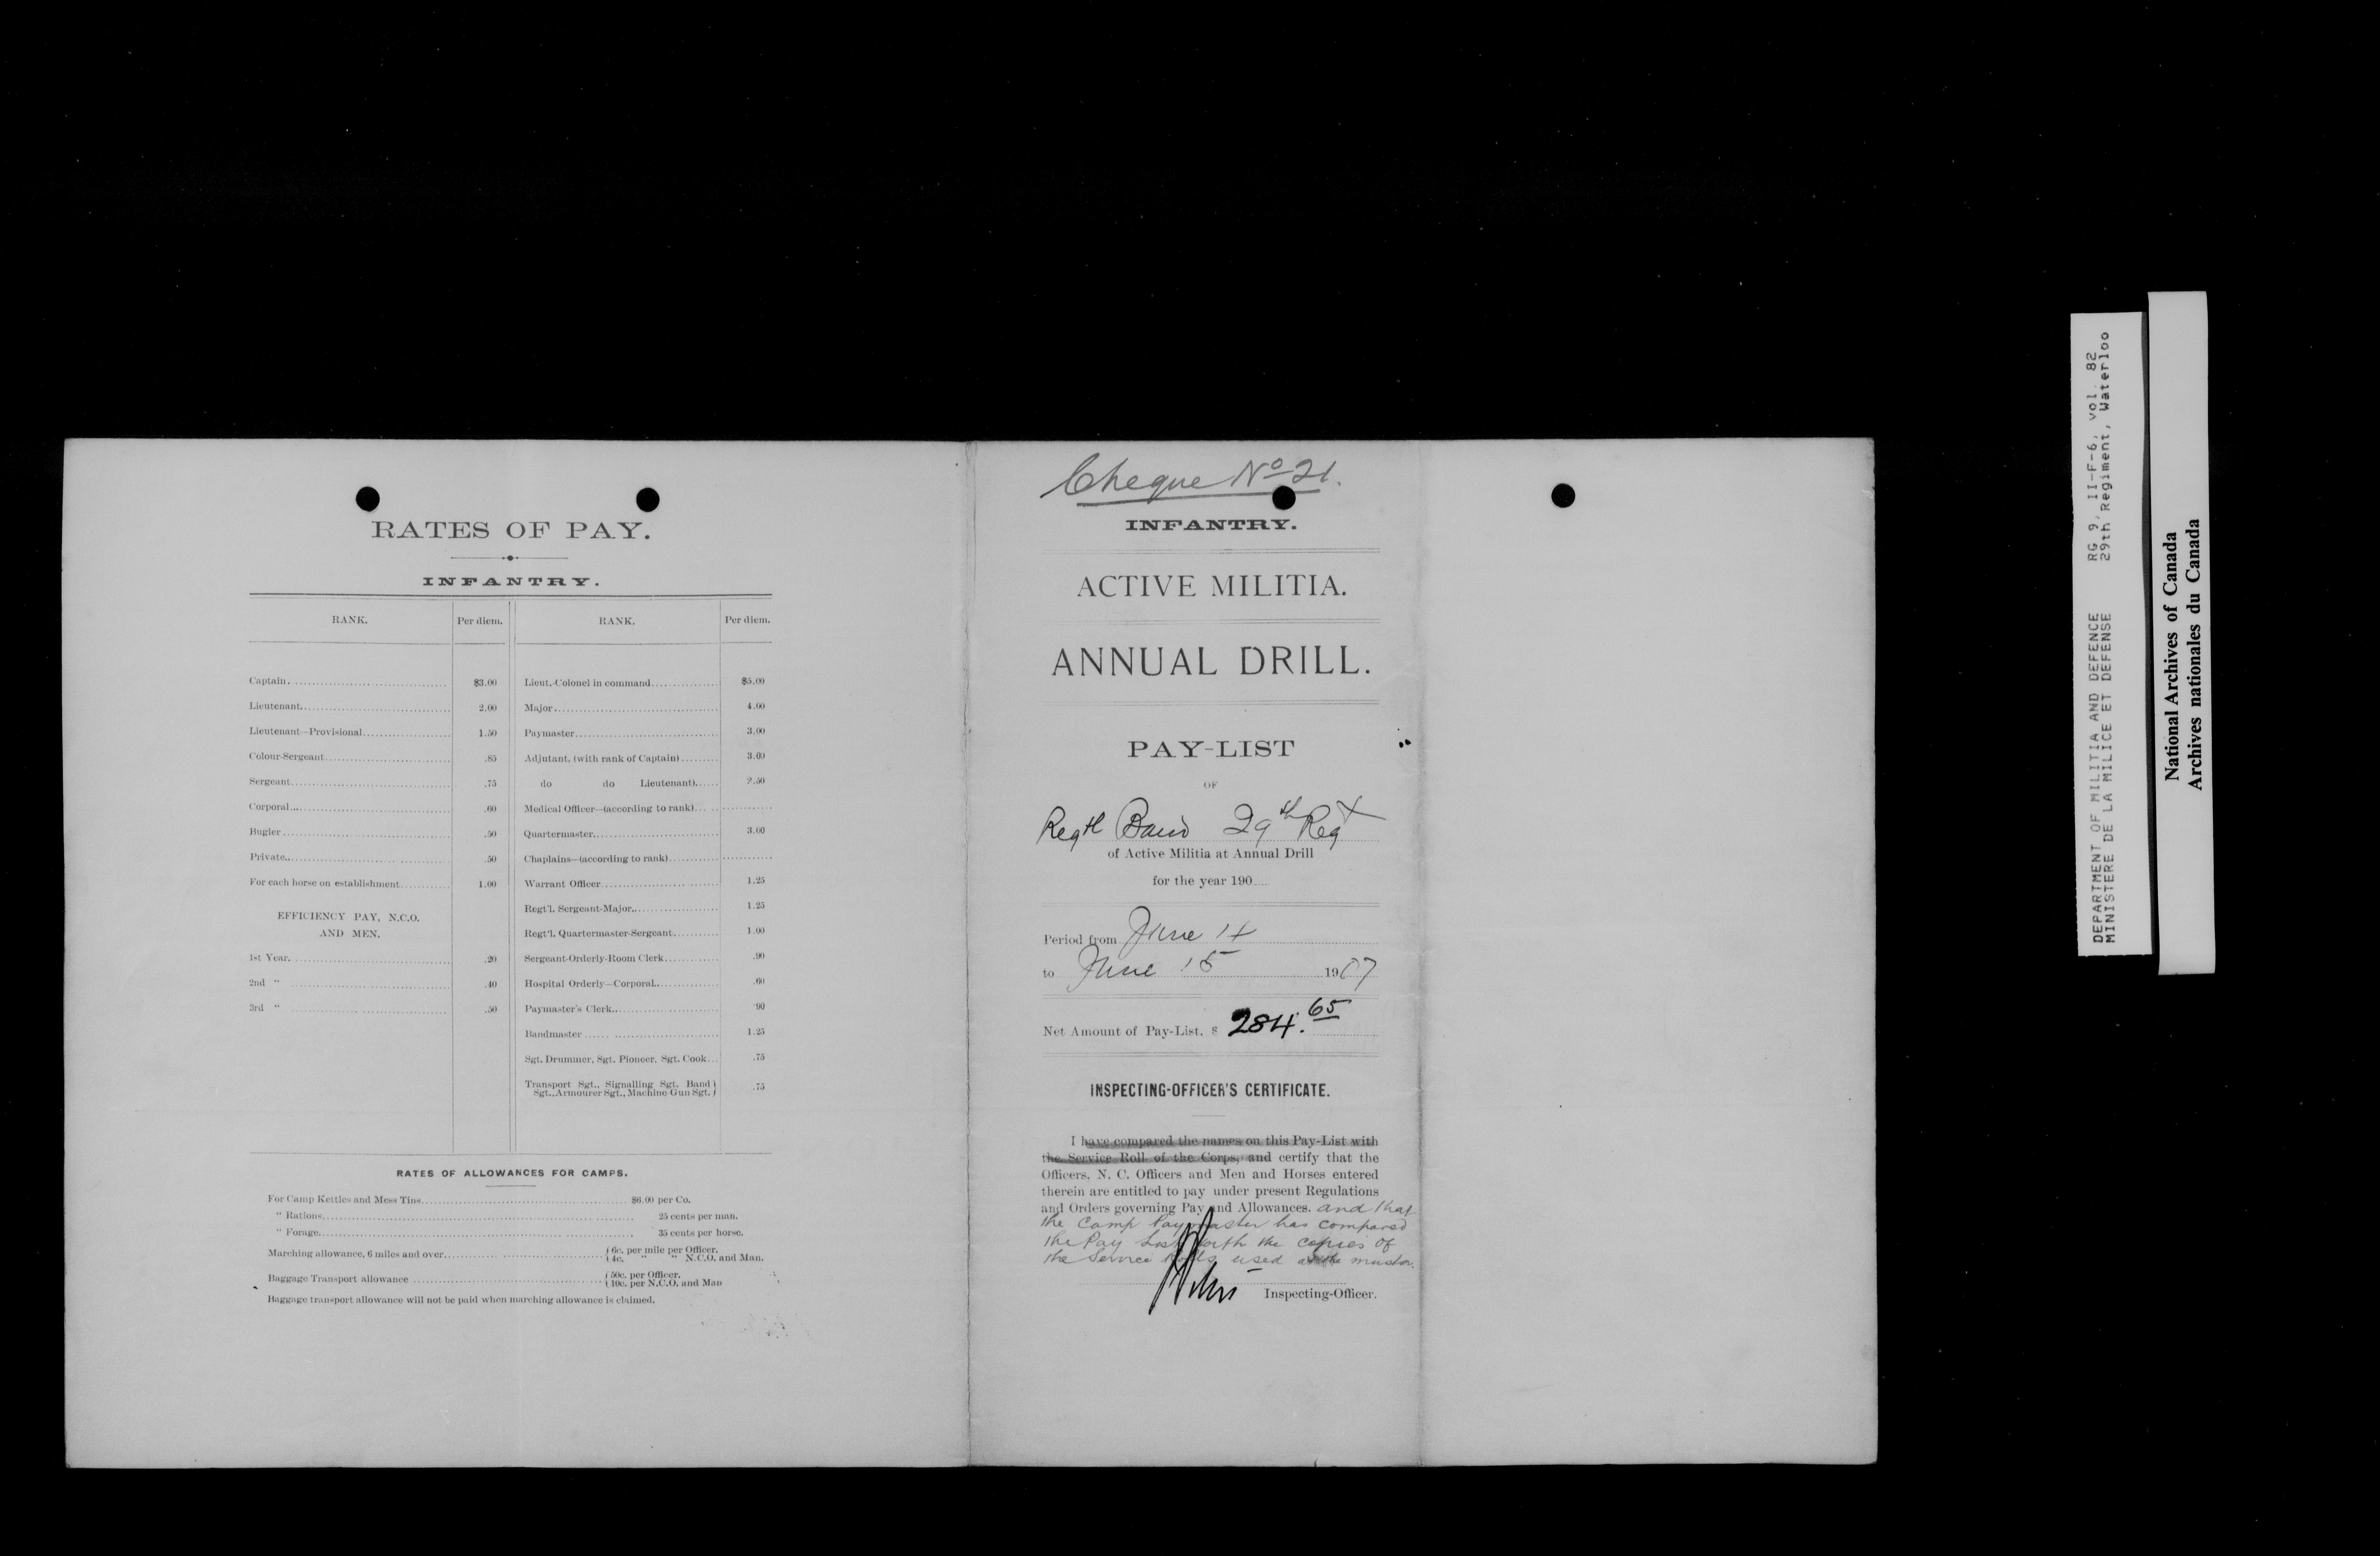 RATES OF PAY.
INFANTRY.
RANK. Per diem. RANK. Per diem.
Captain. $3.00 Lieut.-Colonel in command $5.00
Lieutenant. 2.00 Major 4.00
Lieutenant—Provisional 1.50 Paymaster 3.00
Colour-Sergeant .85 Adjutant, (with rank of Captain) 3.00
Sergeant .75 do do Lieutenant) 2.50
Corporal .60 Medical Officer—(according to rank)
Bugler .50 Quartermaster 3.00
Private .50 Chaplains—(according to rank)
For each horse on establishment 1.00 Warrant Officer 1.25
EFFICIENCY PAY, N.C.O. Regt'l. Sergeant-Major 1.25
AND MEN. Regt'l. Quartermaster-Sergeant 1.00
1st Year. .20 Sergeant-Orderly-Room Clerk .90
2nd " .40 Hospital Orderly—Corporal .60
3rd " .50 Paymaster's Clerk 90
Bandmaster 1.25
Sgt. Drummer, Sgt. Pioneer, Sgt. Cook .75
Transport Sgt., Signalling Sgt. Band
Sgt., Armourer Sgt., Machine Gun Sgt. } .75
RATES OF ALLOWANCES FOR CAMPS.
For Camp Kettles and Mess Tins $6.00 per Co.
" Rations 25 cents per man.
" Forage 35 cents per horse.
Marching allowance, 6 miles and over { 6c. per mile per Officer.
{ 4c. " " N.C.O. and Man.
Baggage Transport allowance { 50c. per Officer.
{ 10c. per N.C.O. and Man
Baggage transport allowance will not be paid when marching allowance is claimed.
Cheque No 21.
INFANTRY.
ACTIVE MILITIA.
ANNUAL DRILL.
PAY-LIST
OF
Regtl Band 29th Regt
of Active Militia at Annual Drill
for the year 190
Period from June 14
to June 15 1907
Net Amount of Pay-List, $ 284.65
INSPECTING-OFFICER'S CERTIFICATE.
I have compared the names on this Pay-List with
the Service Roll of the Corps, and certify that the
Officers, N. C. Officers and Men and Horses entered
therein are entitled to pay under present Regulations
and Orders governing Pay and Allowances. and that
the Camp Paymaster has compared
the Pay List with the copies of
the Service Rolls used muster.
Inspecting-Officer.
DEPARTMENT OF MILITIA AND DEFENCE RG 9, II-F-6, vol. 82
MINISTERE DE LA MILICE ET DEFENSE 29th Regiment, Waterloo
National Archives of Canada
Archives nationales du Canada